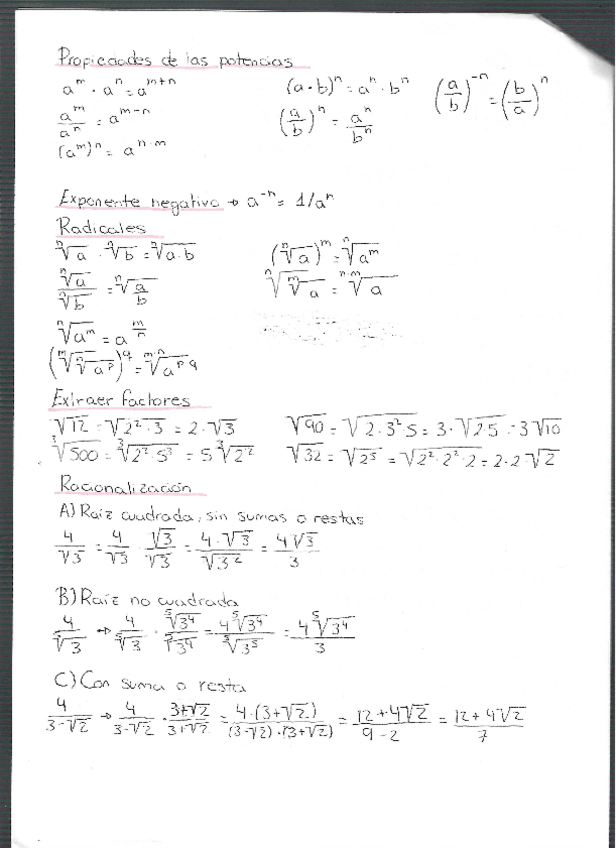 Propiedades de las potencias
aᵐ · aⁿ = aᵐ⁺ⁿ (a·b)ⁿ = aⁿ · bⁿ (a/b)⁻ⁿ = (b/a)ⁿ
aᵐ/aⁿ = aᵐ⁻ⁿ (a/b)ⁿ = aⁿ/bⁿ
(aᵐ)ⁿ = aⁿ·ᵐ
Exponente negativo → a⁻ⁿ = 1/aⁿ
Radicales
ⁿ√a · ⁿ√b = ⁿ√(a·b) (ⁿ√a)ᵐ = ⁿ√(aᵐ)
ⁿ√a / ⁿ√b = ⁿ√(a/b) ⁿ√(ᵐ√a) = ⁿ·ᵐ√a
ⁿ√(aᵐ) = a^(m/n)
(ᵐ√(ⁿ√(a^p)))^q = ᵐ·ⁿ√(a^(p·q))
Extraer factores
√12 = √(2²·3) = 2·√3 √90 = √(2·3²·5) = 3·√(2·5) = 3√10
³√500 = ³√(2²·5³) = 5 ³√(2²) √32 = √(2⁵) = √(2²·2²·2) = 2·2·√2
Racionalización
A) Raíz cuadrada, sin sumas o restas
4/√3 = 4/√3 · √3/√3 = 4·√3/√(3²) = 4√3/3
B) Raíz no cuadrada
4/⁵√3 → 4/⁵√3 · ⁵√(3⁴)/⁵√(3⁴) = 4 ⁵√(3⁴)/⁵√(3⁵) = 4 ⁵√(3⁴)/3
C) Con suma o resta
4/(3-√2) → 4/(3-√2) · (3+√2)/(3+√2) = 4·(3+√2)/((3-√2)·(3+√2)) = (12+4√2)/(9-2) = (12+4√2)/7